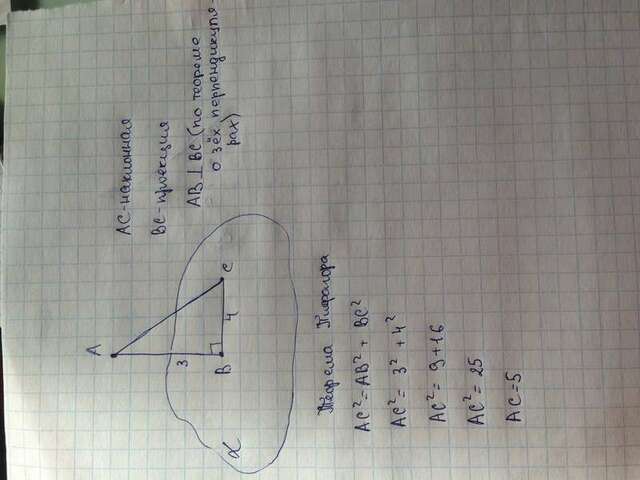 AC-наклонная
BC-проекция
AB ⊥ BC (по теореме
о 3ёх перпендикуля
рах)
A
3
B
4
C
α
Теорема Пифагора
AC² = AB² + BC²
AC² = 3² + 4²
AC² = 9 + 16
AC² = 25
AC = 5